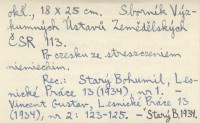 okł., 18 x 25 cm. Sborník Vyz-
kumných Ústavů Zemědělských
ČSR 113.
Po czesku ze streszczeniem
niemieckim.
Rec.: Starý Bohumil, Les-
nické Práce 13 (1934), nr 1. -
Vincent Gustav, Lesnické Práce 13
(1934), nr 2: 123-125. - Starý B. 1934.